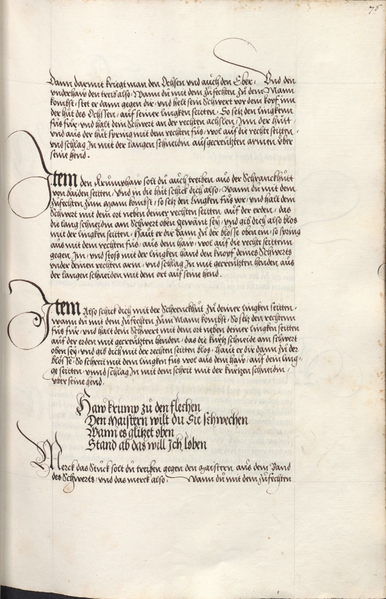 75
Dann darmit kriegt man den Ochsen vnd auch den Eber · Vnd den
vnderhaw den treib also · Wann du mit dem zůfechten Zu dem Mann
kombst · stet er dann gegen dir · vnd helt sein Schwert vor dem kopf inn
der hůt des Ochsen · auf seiner lingken seitten · So setz den lingken
fůs für · vnd halt dein Schwert an der rechten achssen · Inn der hůtt
vnd aus der hůt spring mit dem rechten fůs · wol auf die recht seitten
vnd schlag In mit der langen schneiden · aus gereckten armen vber
seine hend ·
Item den krumphaw solt du auch treiben aus der Schranckhůtt
von baiden seitten · Vnd in die hůt schick dich also · Wann du mit dem
zůfechten zum Mann kombst · so setz den lingken fůs vor · vnd halt dein
Schwert mit dem ort neben deiner rechten seitten · auf der erden · das
die lang schneid am Schwert oben gewant sey · vnd gib dich also blos
mit der lingken seitten · Haut er dir dann zu der blosse oben ein · so spring
aus mit dem rechten fůs · aus dem haw · wol auf die recht seitten
gegen Im · vnd stoss mit der lingen hand den knopf deines Schwerts
vnder deinen rechten arm · vnd schlag In mit gereckten henden · aus
der langen schneiden mit dem ort auf seine hend ·
Item Also schick dich mit der Schranckhůt Zu deiner lingken seitten
wann du mit dem Zůfechten Zum Mann kombst · So setz den rechten
fůs für · vnd halt dein Schwert mit dem ort neben deiner lingken seitten
auf der erden mit gereckten henden · das die kurtz schneid am schwert
oben sey · vnd gib dich mit der rechten seitten blos · haut er dir dann zu der
blosse · So schreit mit dem lingken fůs wol aus dem haw · auf dem ling-
ge seitten · vnnd schlag In mit dem schrit mit der kurtzen schneiden
vber seine hend ·
Haw krump zu den flechen
Den Maistern wilt du Sie schwechen
Wann es glitzet oben
Stand ab das will Ich loben
Merck das Stuck solt du treiben gegen den Maistern aus dem Band
des Schwerts · vnd das merck also · Wann du mit dem zůfechten